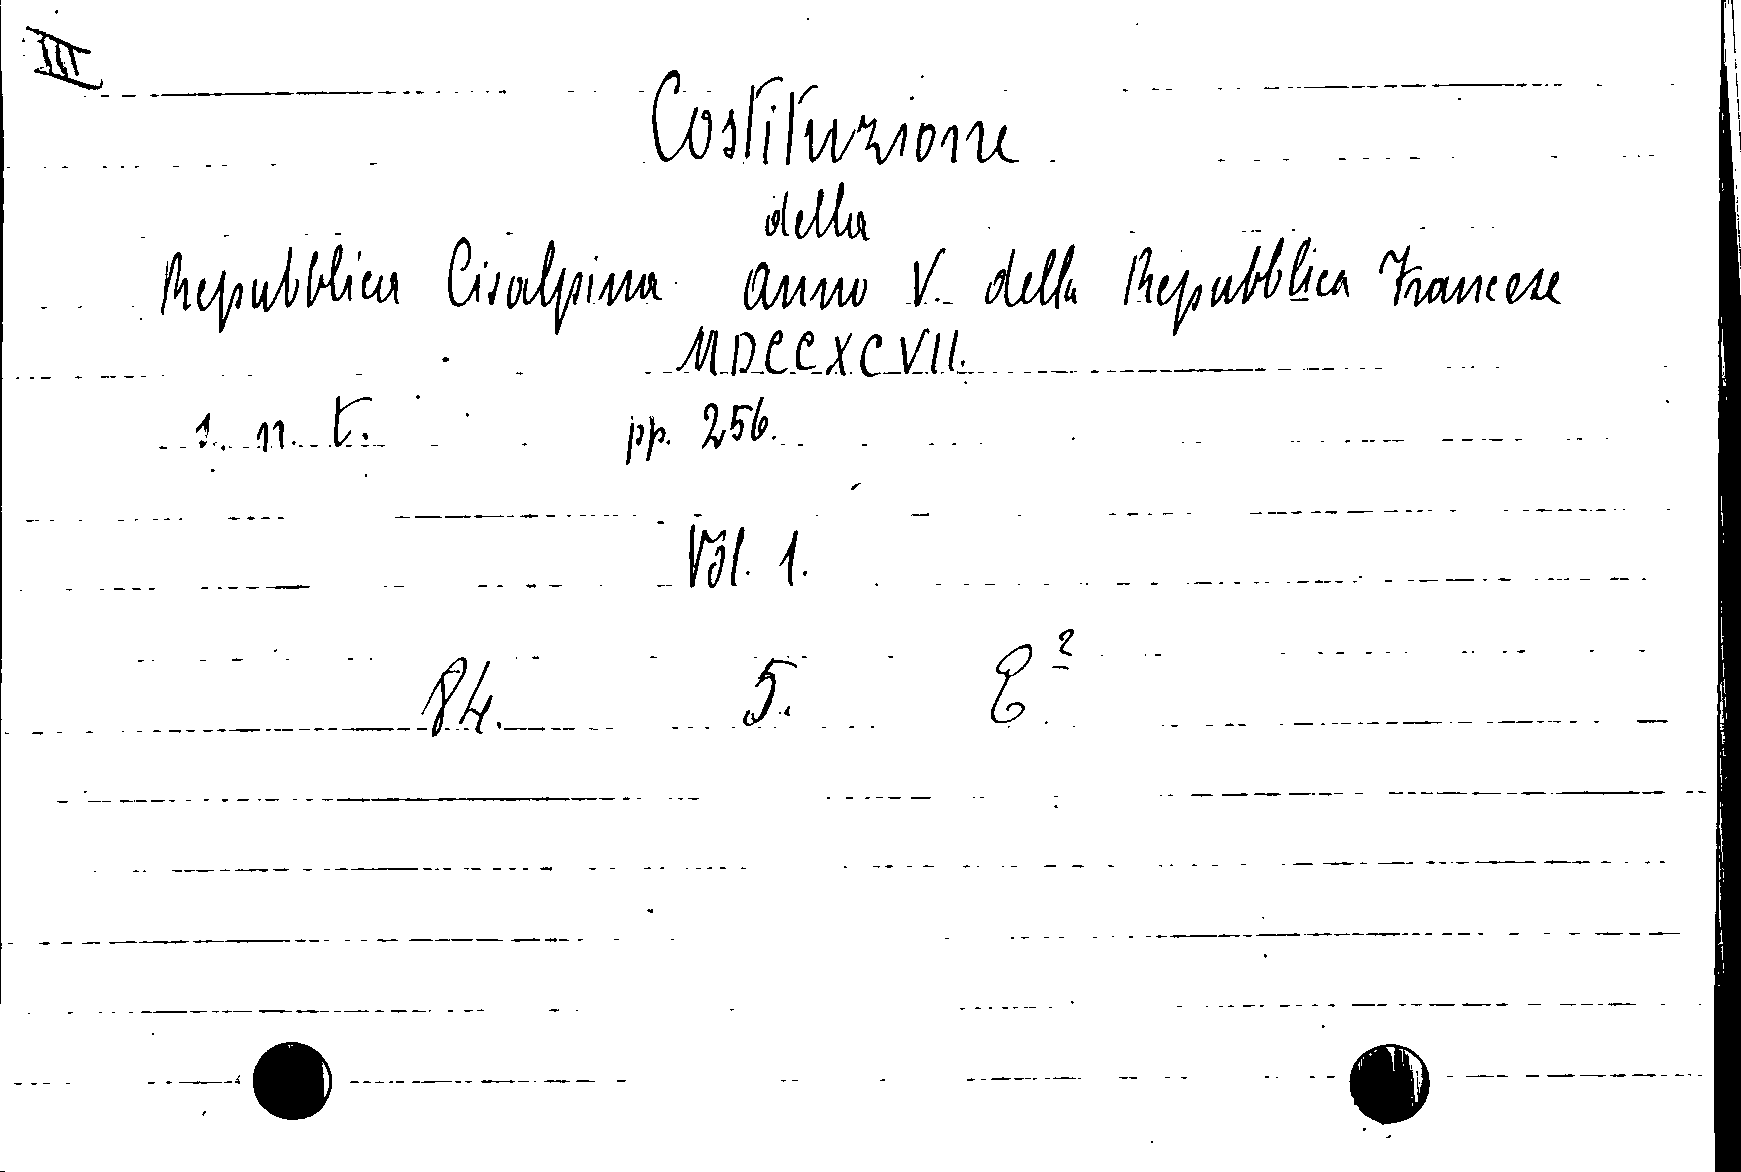 III
Costituzione
della
Repubblica Cisalpina anno V. della Repubblica Francese
MDCCXCVII.
s. n. t. pp. 256.
Vol. 1.
84. 5. E²